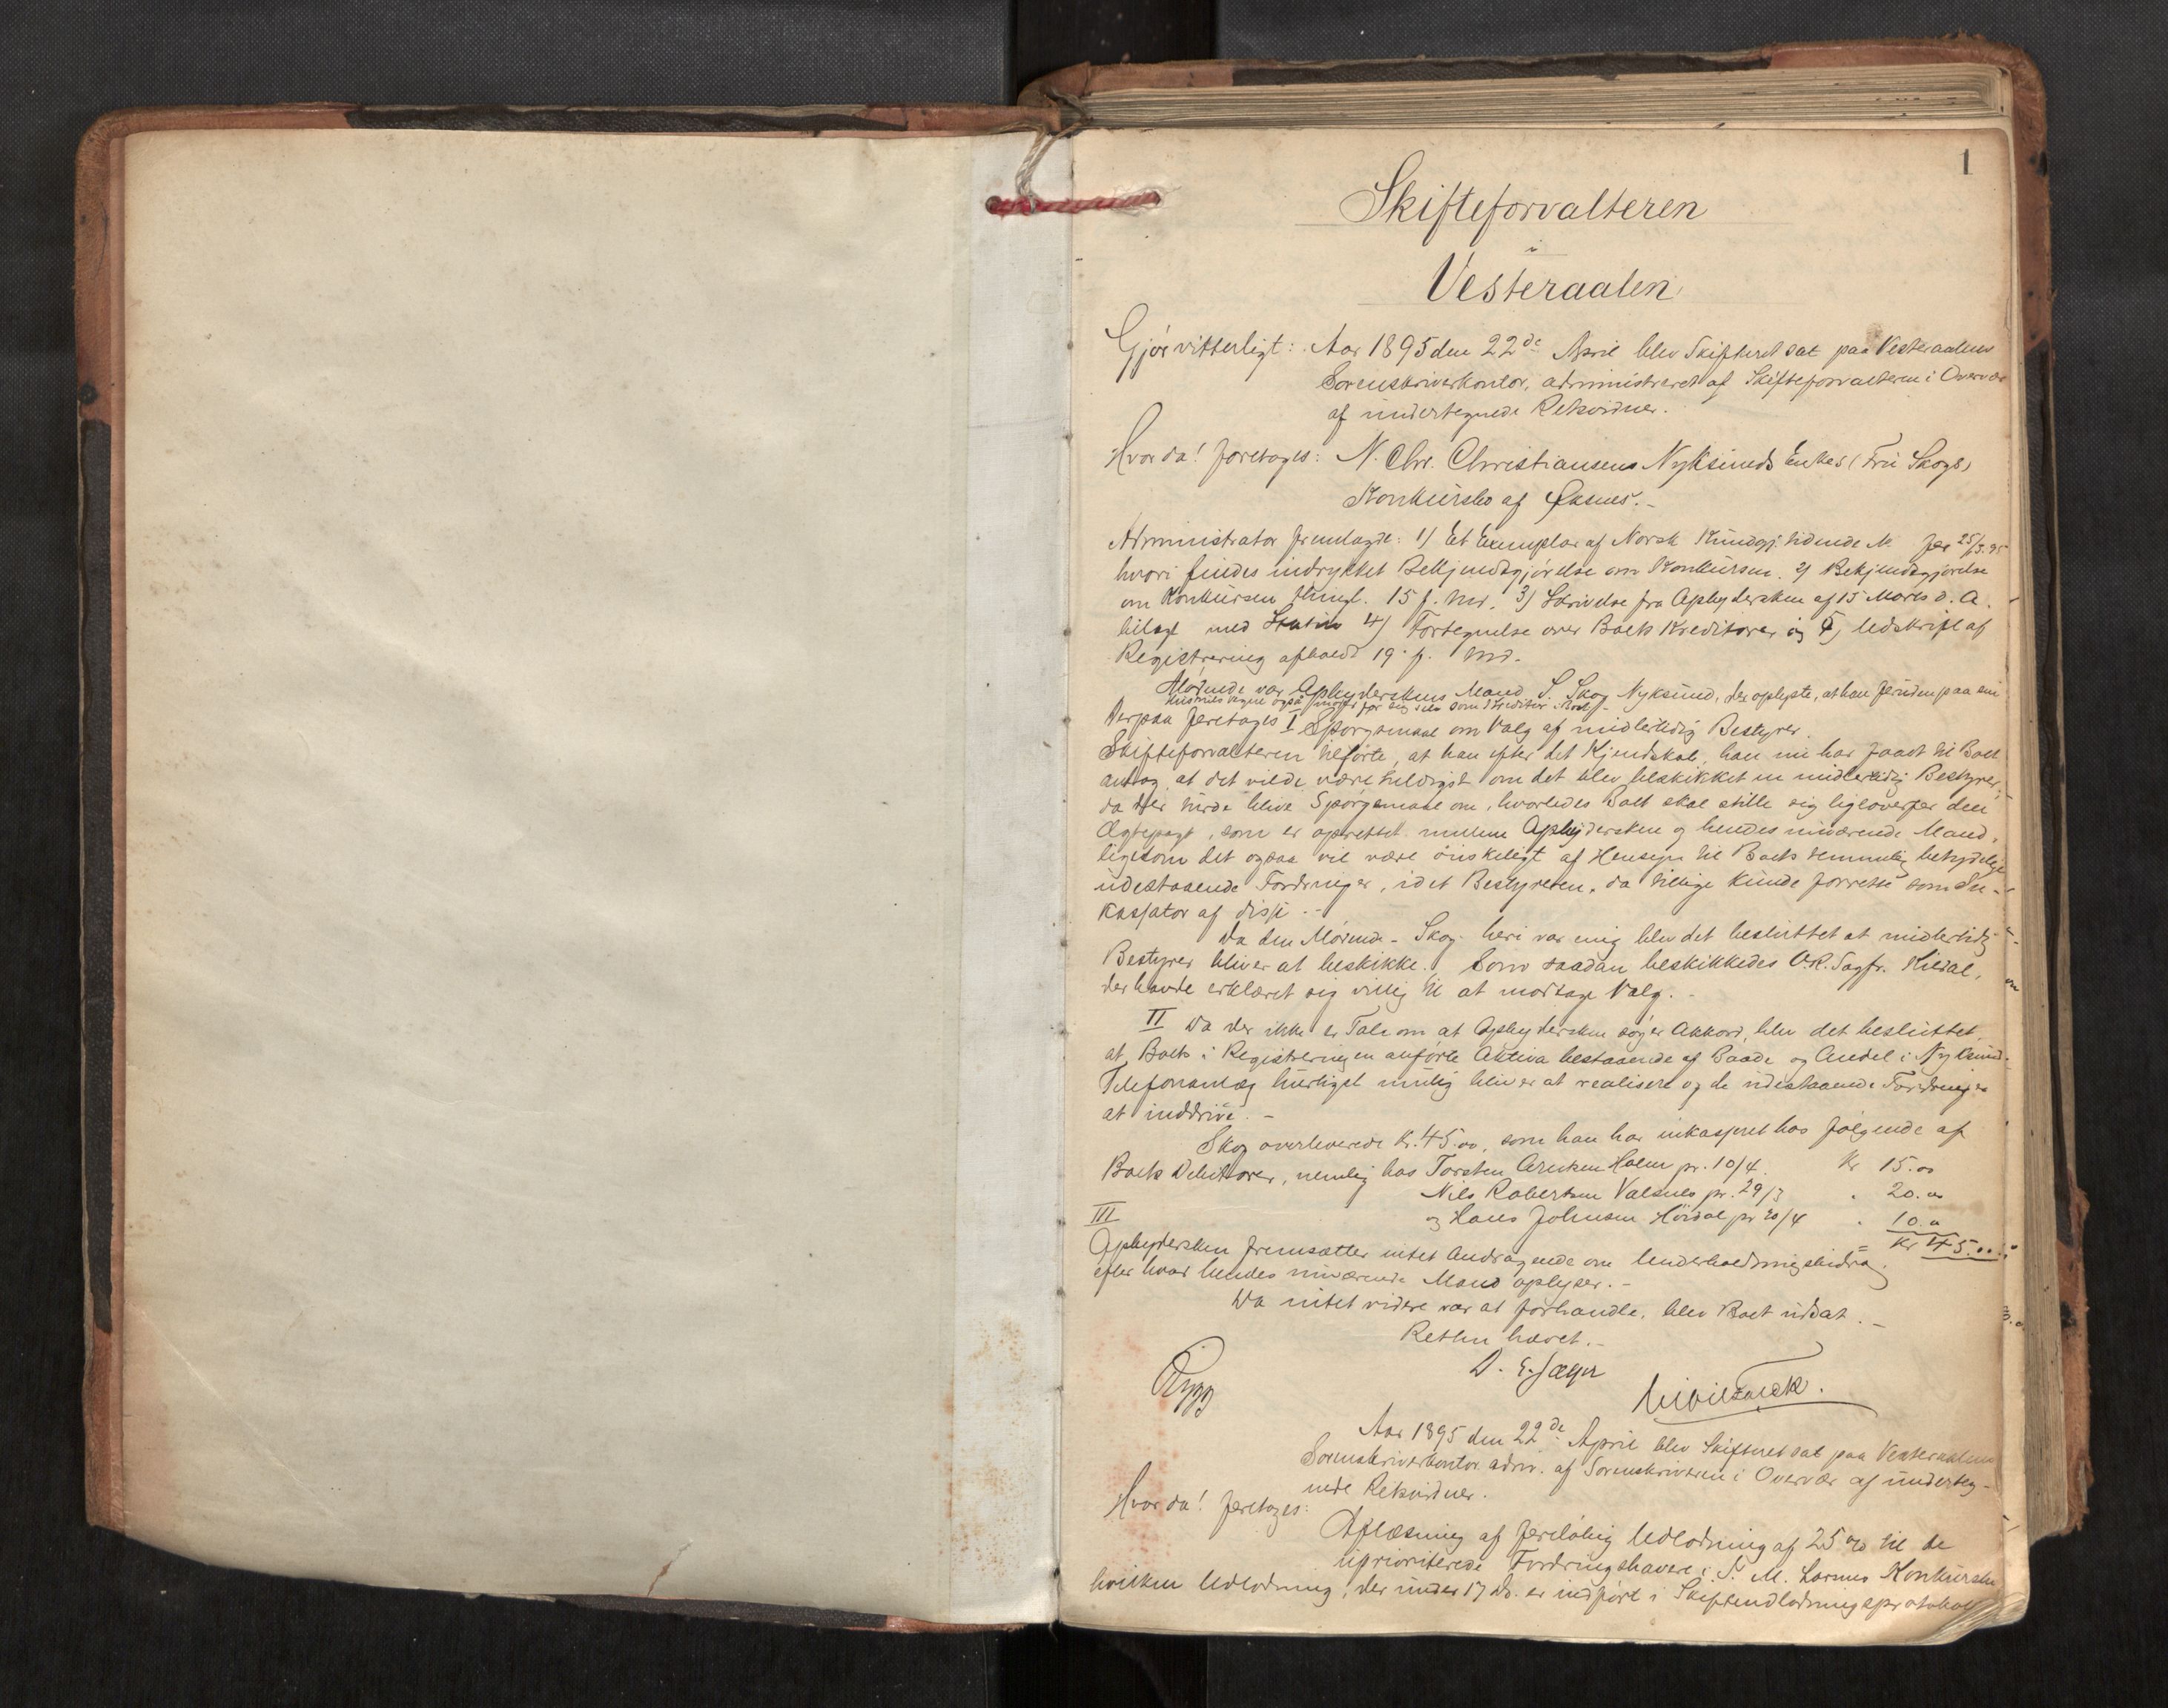 1
Skifteforvalteren
i
Vesteraalen
Gjör vitterligt: Aar 1895 den 22de April blev Skifteret sat paa Vesteraalens
Sorenskriverkontor, administreret af Skifteforvalteren i Overvær
af undertegnede Retsvidner.
Hvor da! foretages: N. Chr. Christiansens Nyksunds Enkes (Fru Skogs)
Konkursbo af Øksnes.-
Administrator fremlagde: 1) Et Exemplar af Norsk Kundgj. tidende № for 25/3. 95
hvori findes indrykket Bekjendtgjörelse om Konkursen. 2) Bekjendtgjörelse
om Konkursen thingl. 15 f. Md. 3) Skrivelse fra Opbydersken af 15 Marts d. A.
bilagt med 4) Fortegnelse over Boets Kreditorer og 5) Udskrift af
Registrering afholdt 19. f. Md.
Mödende var Opbyderskens Mand S. Skog Nyksund, der oplyste, at han foruden paa sin
Hustrus Vegne også mødte for sig selv som Kreditor i Boet.
Derpaa foretoges I Spörgsmaal om Valg af midlertidig Bestyrer.
Skifteforvalteren tilförte, at han efter det Kjendskab, han nu har faaet til Boet
antog, at det vilde være heldigst om det blev beskikket en midlertidig Bestyrer,
da der turde blive Spörgsmaal om, hvorledes Boet skal stille sig ligeoverfor den
Ægtepagt, som er oprettet mellem Opbydersken og hendes nuværende Mand,
ligesom det ogsaa vil være önskeligt af Hensyn til Boets temmelig betydelige
udestaaende Fordringer, idet Bestyreren, da tillige kunde forrette som In-
kassator af disse.-
Da den Mödende - Skog - heri var enig blev det besluttet at midlertidig
Bestyrer bliver at beskikke. Som saadan beskikkedes O.R. Sagfr. Kildal,
der havde erklæret sig villig til at modtage Valg.-
II Da der ikke er Tale om at Opbydersken söger Akkord, blev det besluttet,
at Boets i Registreringen anförte Aktiva bestaaende af Baade og Andel i Nyksund-
Telefonanlæg hurtigst mulig bliver at realisere og de udestaaende Fordringer
at inddrive.-
Skog overleverede Kr. 45.00, som han har inkasseret hos fölgende af
Boets Debitorer, nemlig hos Torsten Holm pr. 10/4. Kr 15.00
Nils Robertsen Valsnes pr. 29/3 " 20.00
III og Hans Johnsen pr 20/4 " 10.00
= Kr 45.00
Opbydersken fremsætter intet Andragende om Underholdningsbidrag,
efter hvad hendes nuværende Mand oplyser.-
Da intet videre var at forhandle, blev Boet udsat.-
Retten hævet.-
Rygg
D. E. Jæger
Aar 1895 den 22de April blev Skifteret sat paa Vesteraalens
Sorenskriverkontor adm. af Sorenskriveren i Overvær af underteg-
nede Retsvidner.
Hvor da! foretoges:
Oplæsning af foreløbig Udlodning af 25 % til de
uprioriterede Fordringshavere i S. M. Konkursbo
hvilken Udlodning, der under 17 ds. er indfört i Skifteudlodningsprotokol